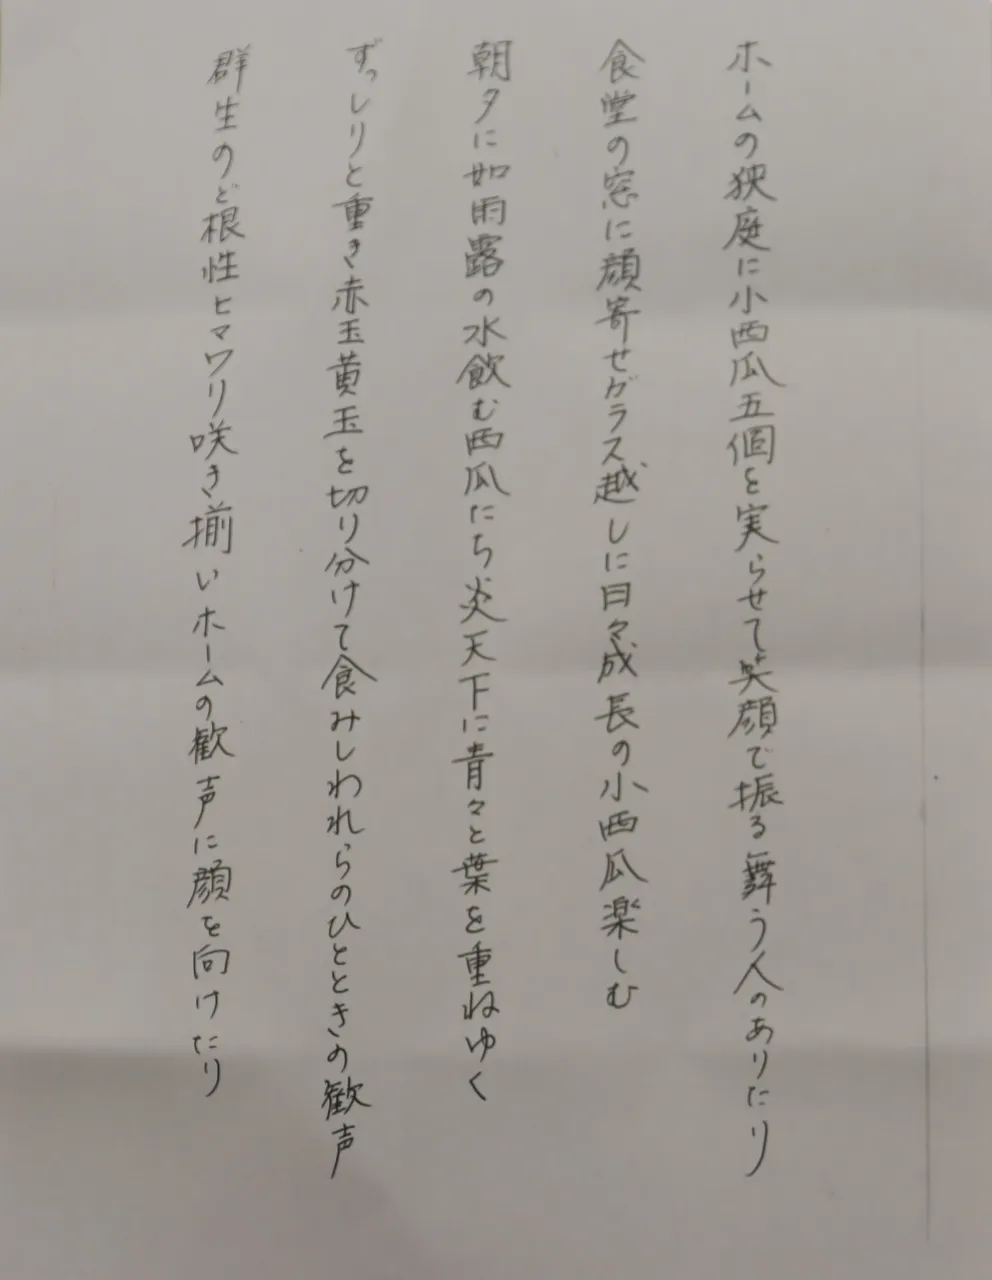 ホームの狭庭に小西瓜五個を実らせて笑顔で振る舞う人のありたり
食堂の窓に顔寄せガラス越しに日々成長の小西瓜楽しむ
朝夕に如雨露の水飲む西瓜たち炎天下に青々と葉を重ねゆく
ずっしりと重き赤玉黄玉を切り分けて食みしわれらのひとときの歓声
群生のど根性ヒマワリ咲き揃いホームの歓声に顔を向けたり